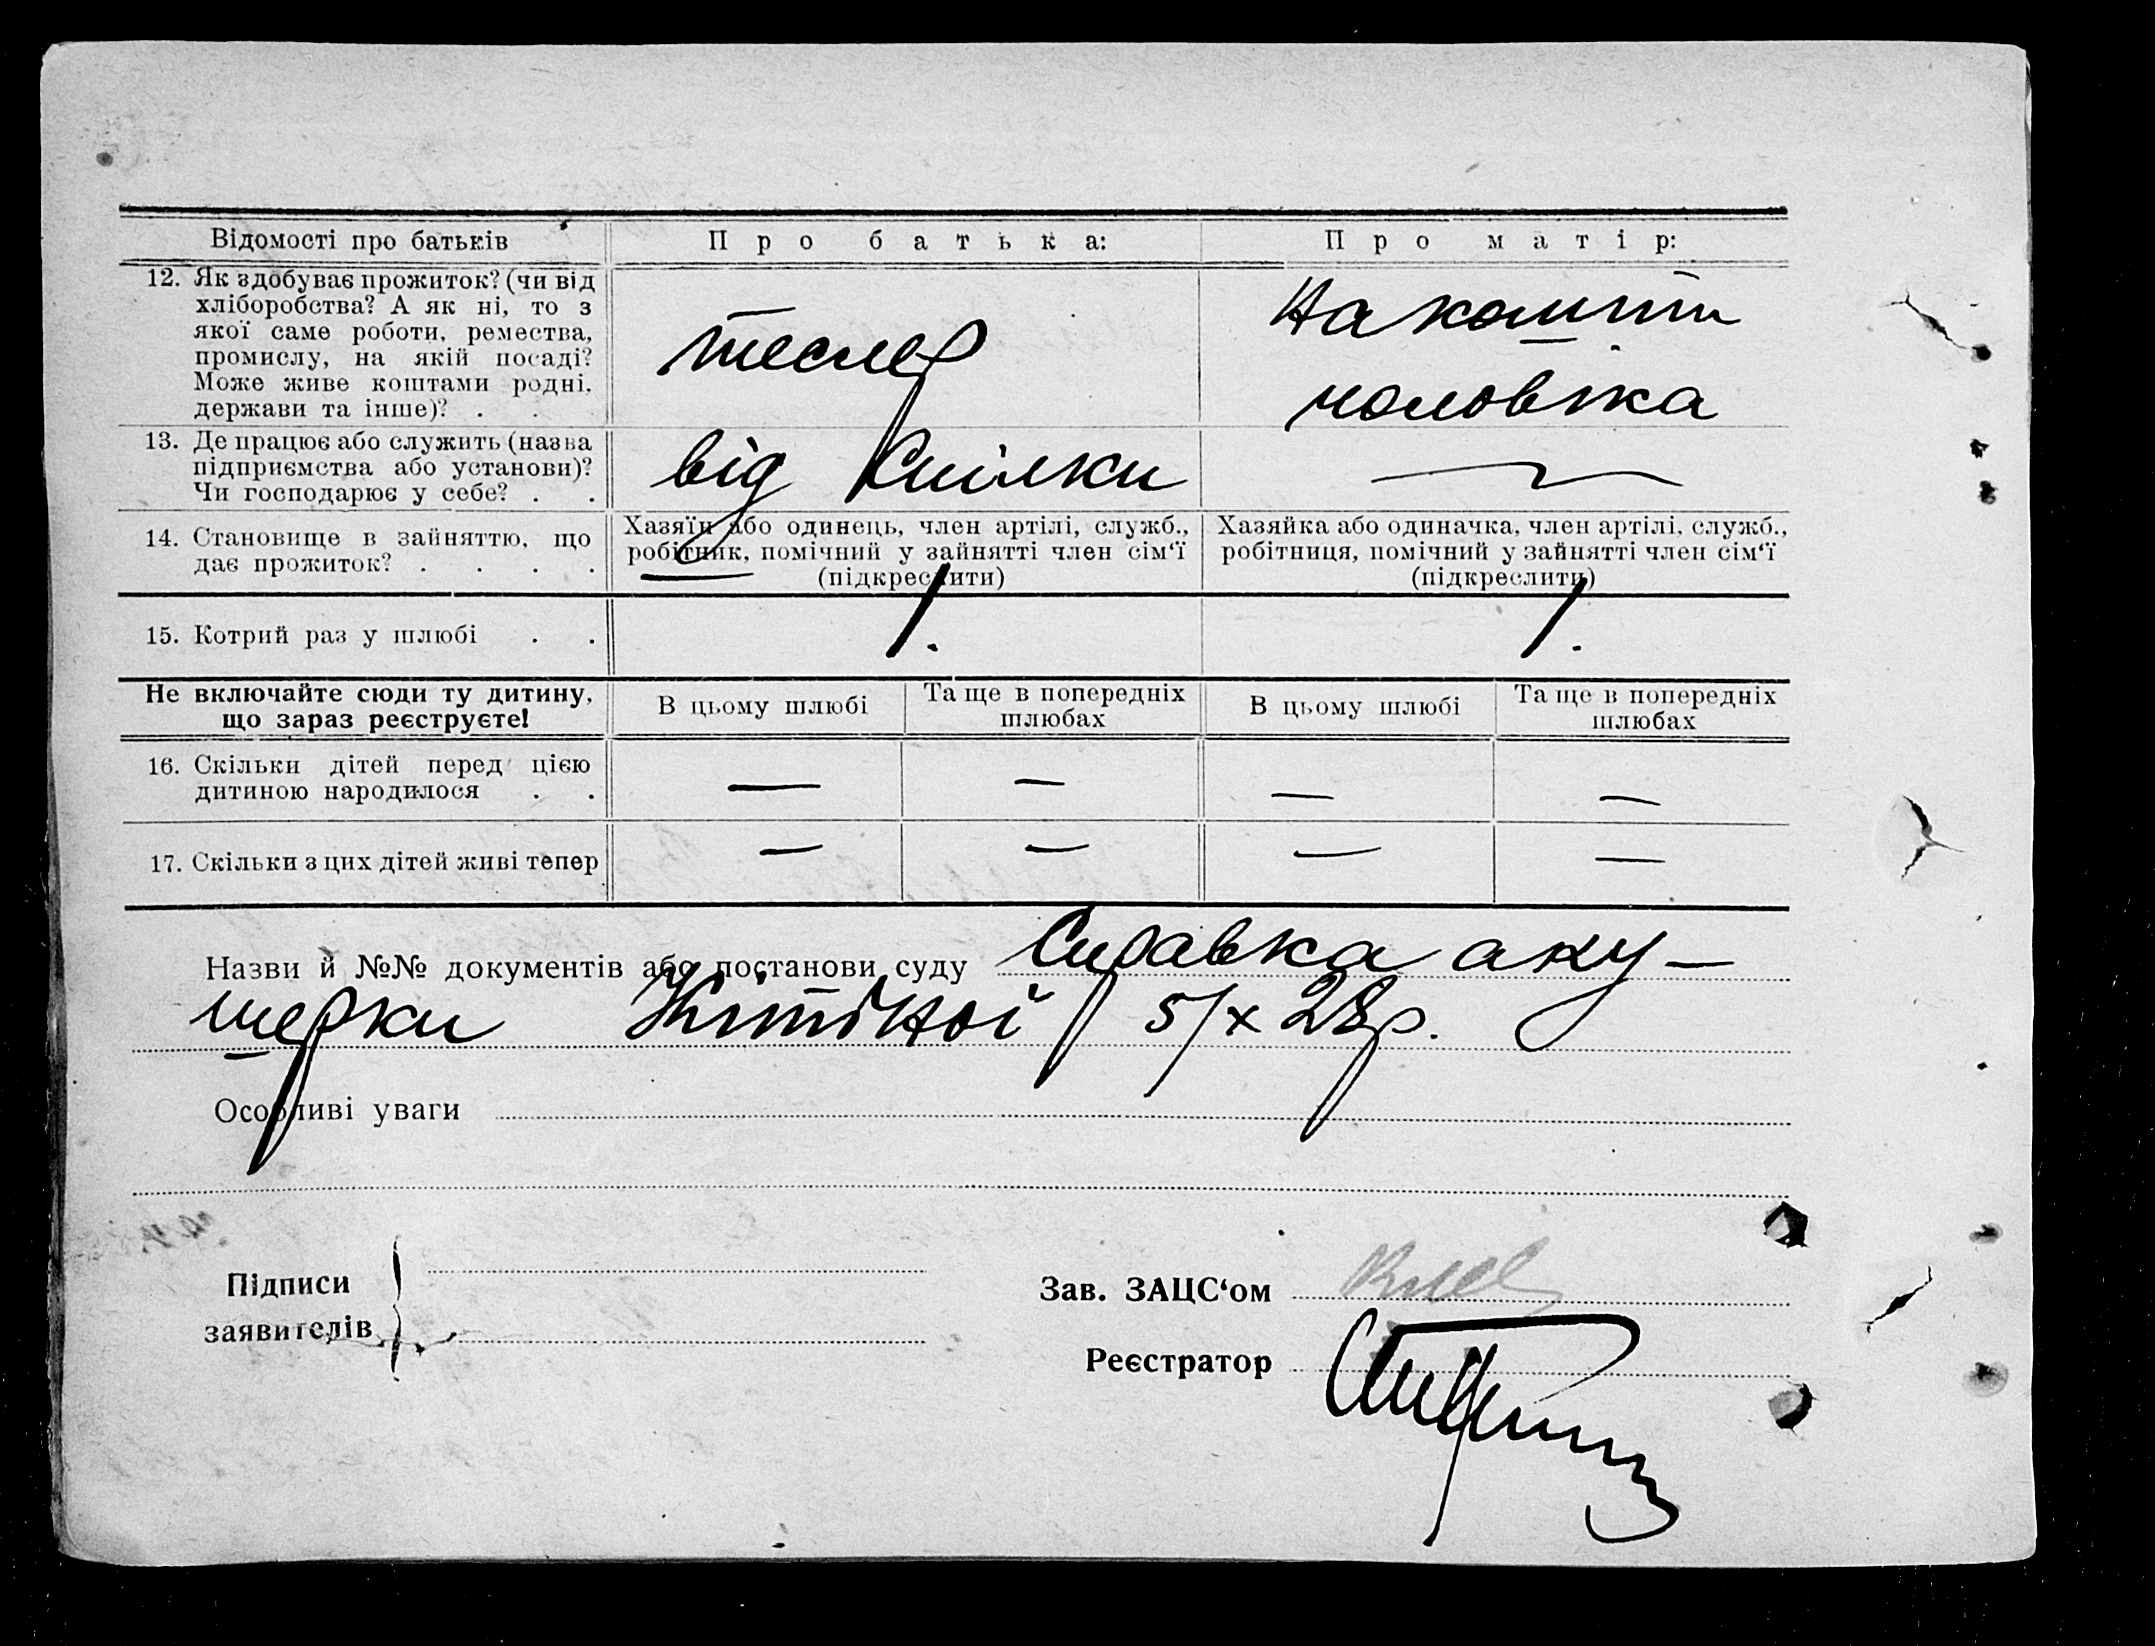 Відомості про батьків
Про батька:
Про матір:
12. Як здобуває прожиток? (чи від
хліборобства? А як ні, то з
якої саме роботи, ремества,
промислу, на якій посаді?
Може живе коштами родні,
держави та інше)? .
тесляр
На кошти
чоловіка
13. Де працює або служить (назва
підприємства або установи)?
Чи господарює у себе? . .
від Спілки
—
14. Становище в зайняттю, що
дає прожиток? . . . .
Хазяїн або одинець, член артілі, служб.,
робітник, помічний у зайнятті член сім‘ї
(підкреслити)
Хазяйка або одиначка, член артілі, служб.,
робітниця, помічний у зайнятті член сім‘ї
(підкреслити)
15. Котрий раз у шлюбі . .
1.
1.
Не включайте сюди ту дитину,
що зараз реєструєте!
В цьому шлюбі
Та ще в попередніх
шлюбах
В цьому шлюбі
Та ще в попередніх
шлюбах
16. Скільки дітей перед цією
дитиною народилося . .
— — — —
17. Скільки з цих дітей живі тепер
— — — —
Назви й №№ документів або постанови суду Справка аку-
шерки 5/X 28р.
Особливі уваги
Підписи
заявителів
Зав. ЗАЦС‘ом
Реєстратор